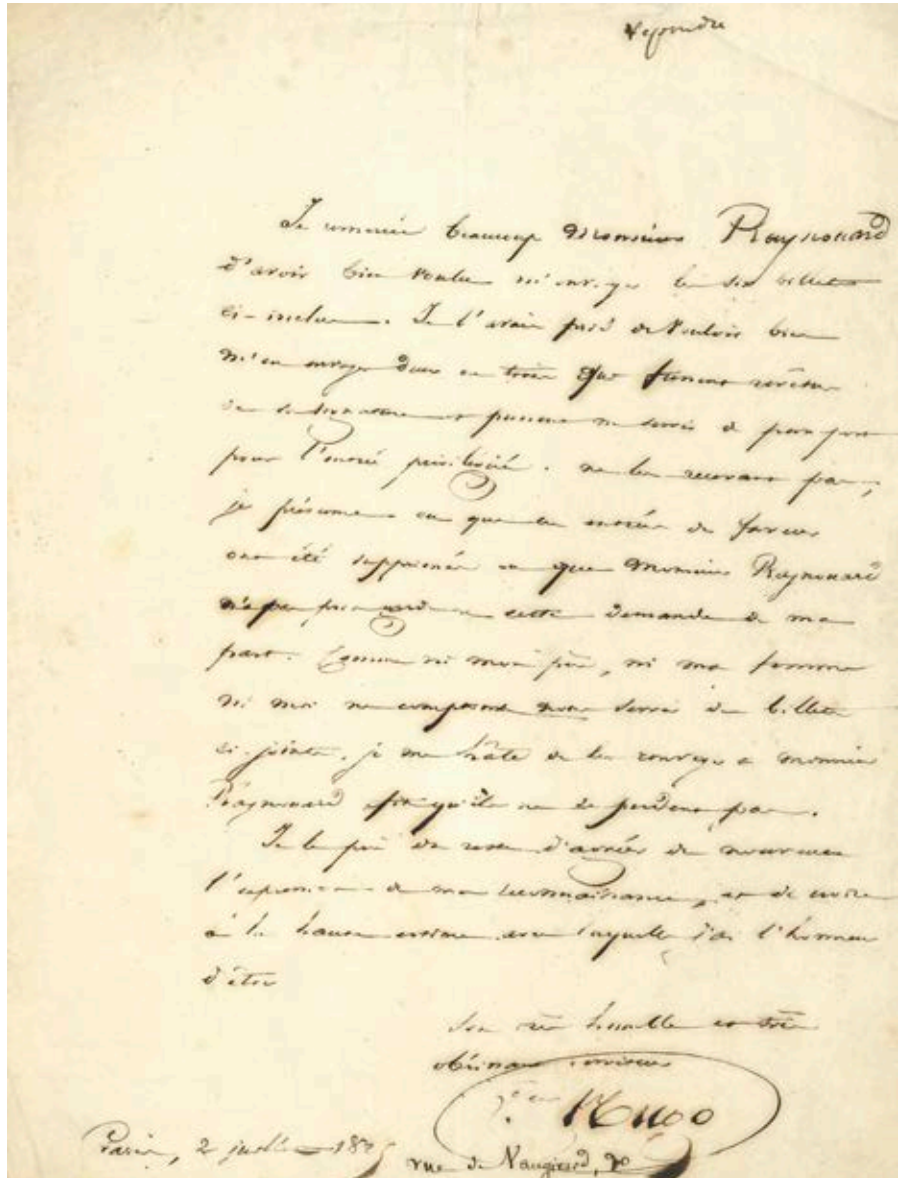 Répondre
Je remercie beaucoup Monsieur Raynouard
d'avoir bien voulu m'envoyer les six billets
ci-inclus. Je l'avais prié de vouloir bien
m'en envoyer deux ou trois qui fussent revêtus
de sa signature et pussent me servir de
pour l'entrée privilégiée. ne les recevant pas,
je présume ou que les entrées de faveur
ont été supprimées ou que Monsieur Raynouard
n'a pas pris garde à cette demande de ma
part. Comme ni mon père, ni ma femme
ni moi ne comptons nous servir des billets
ci-joints, je me hâte de les renvoyer à monsieur
Raynouard afin qu'ils ne se perdent pas.
Je le prie de d'agréer de nouveau
l'expression de ma reconnaissance, et de croire
à la haute estime avec laquelle j'ai l'honneur
d'être
Son très humble et très
obéissant serviteur
Hugo
Paris, 2 juillet
rue de Vaugirard, 90